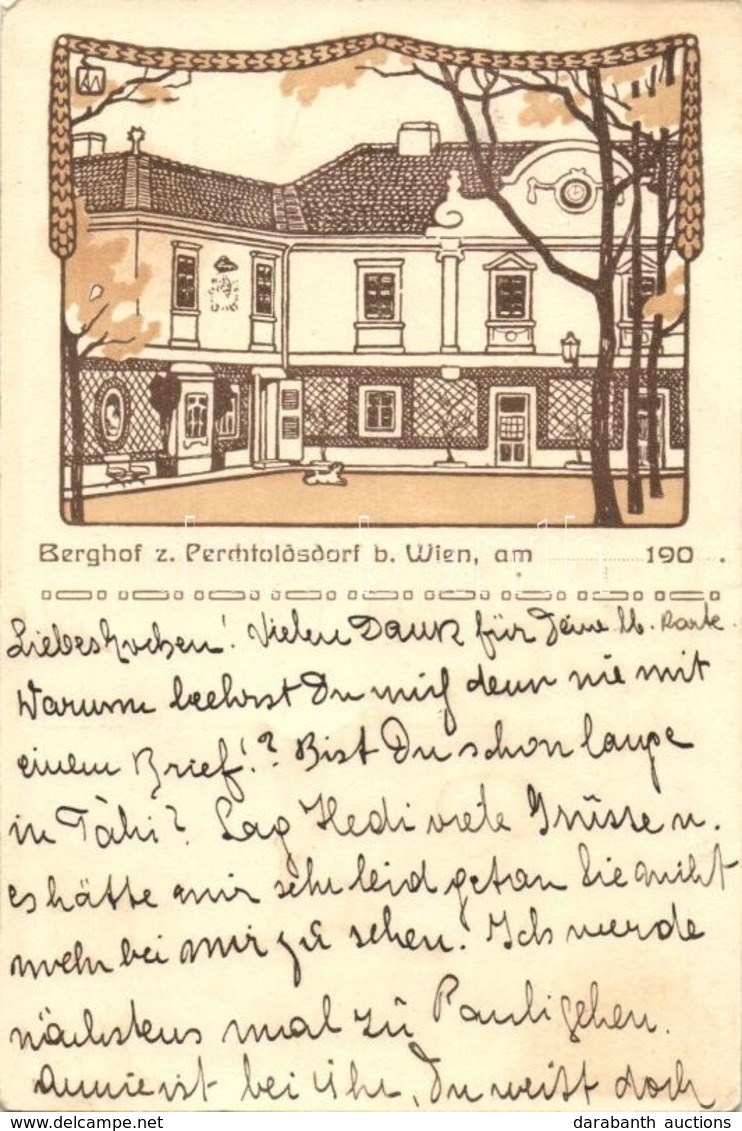 Berghof z. Perchtoldsdorf b. Wien, am 190 .
Vielen Dank für Deine lb. Karte.
Warum beehrst Du mich denn nie mit
einem Brief!? Bist Du schon lange
in Táhi? Sag Hedi viele Grüsse u.
es hätte mir sehr leid getan Sie nicht
mehr bei mir zu sehen. Ich werde
nächstens mal zu Pauli gehen.
Annie ist bei ihr, Du weist doch
darabanth auctions